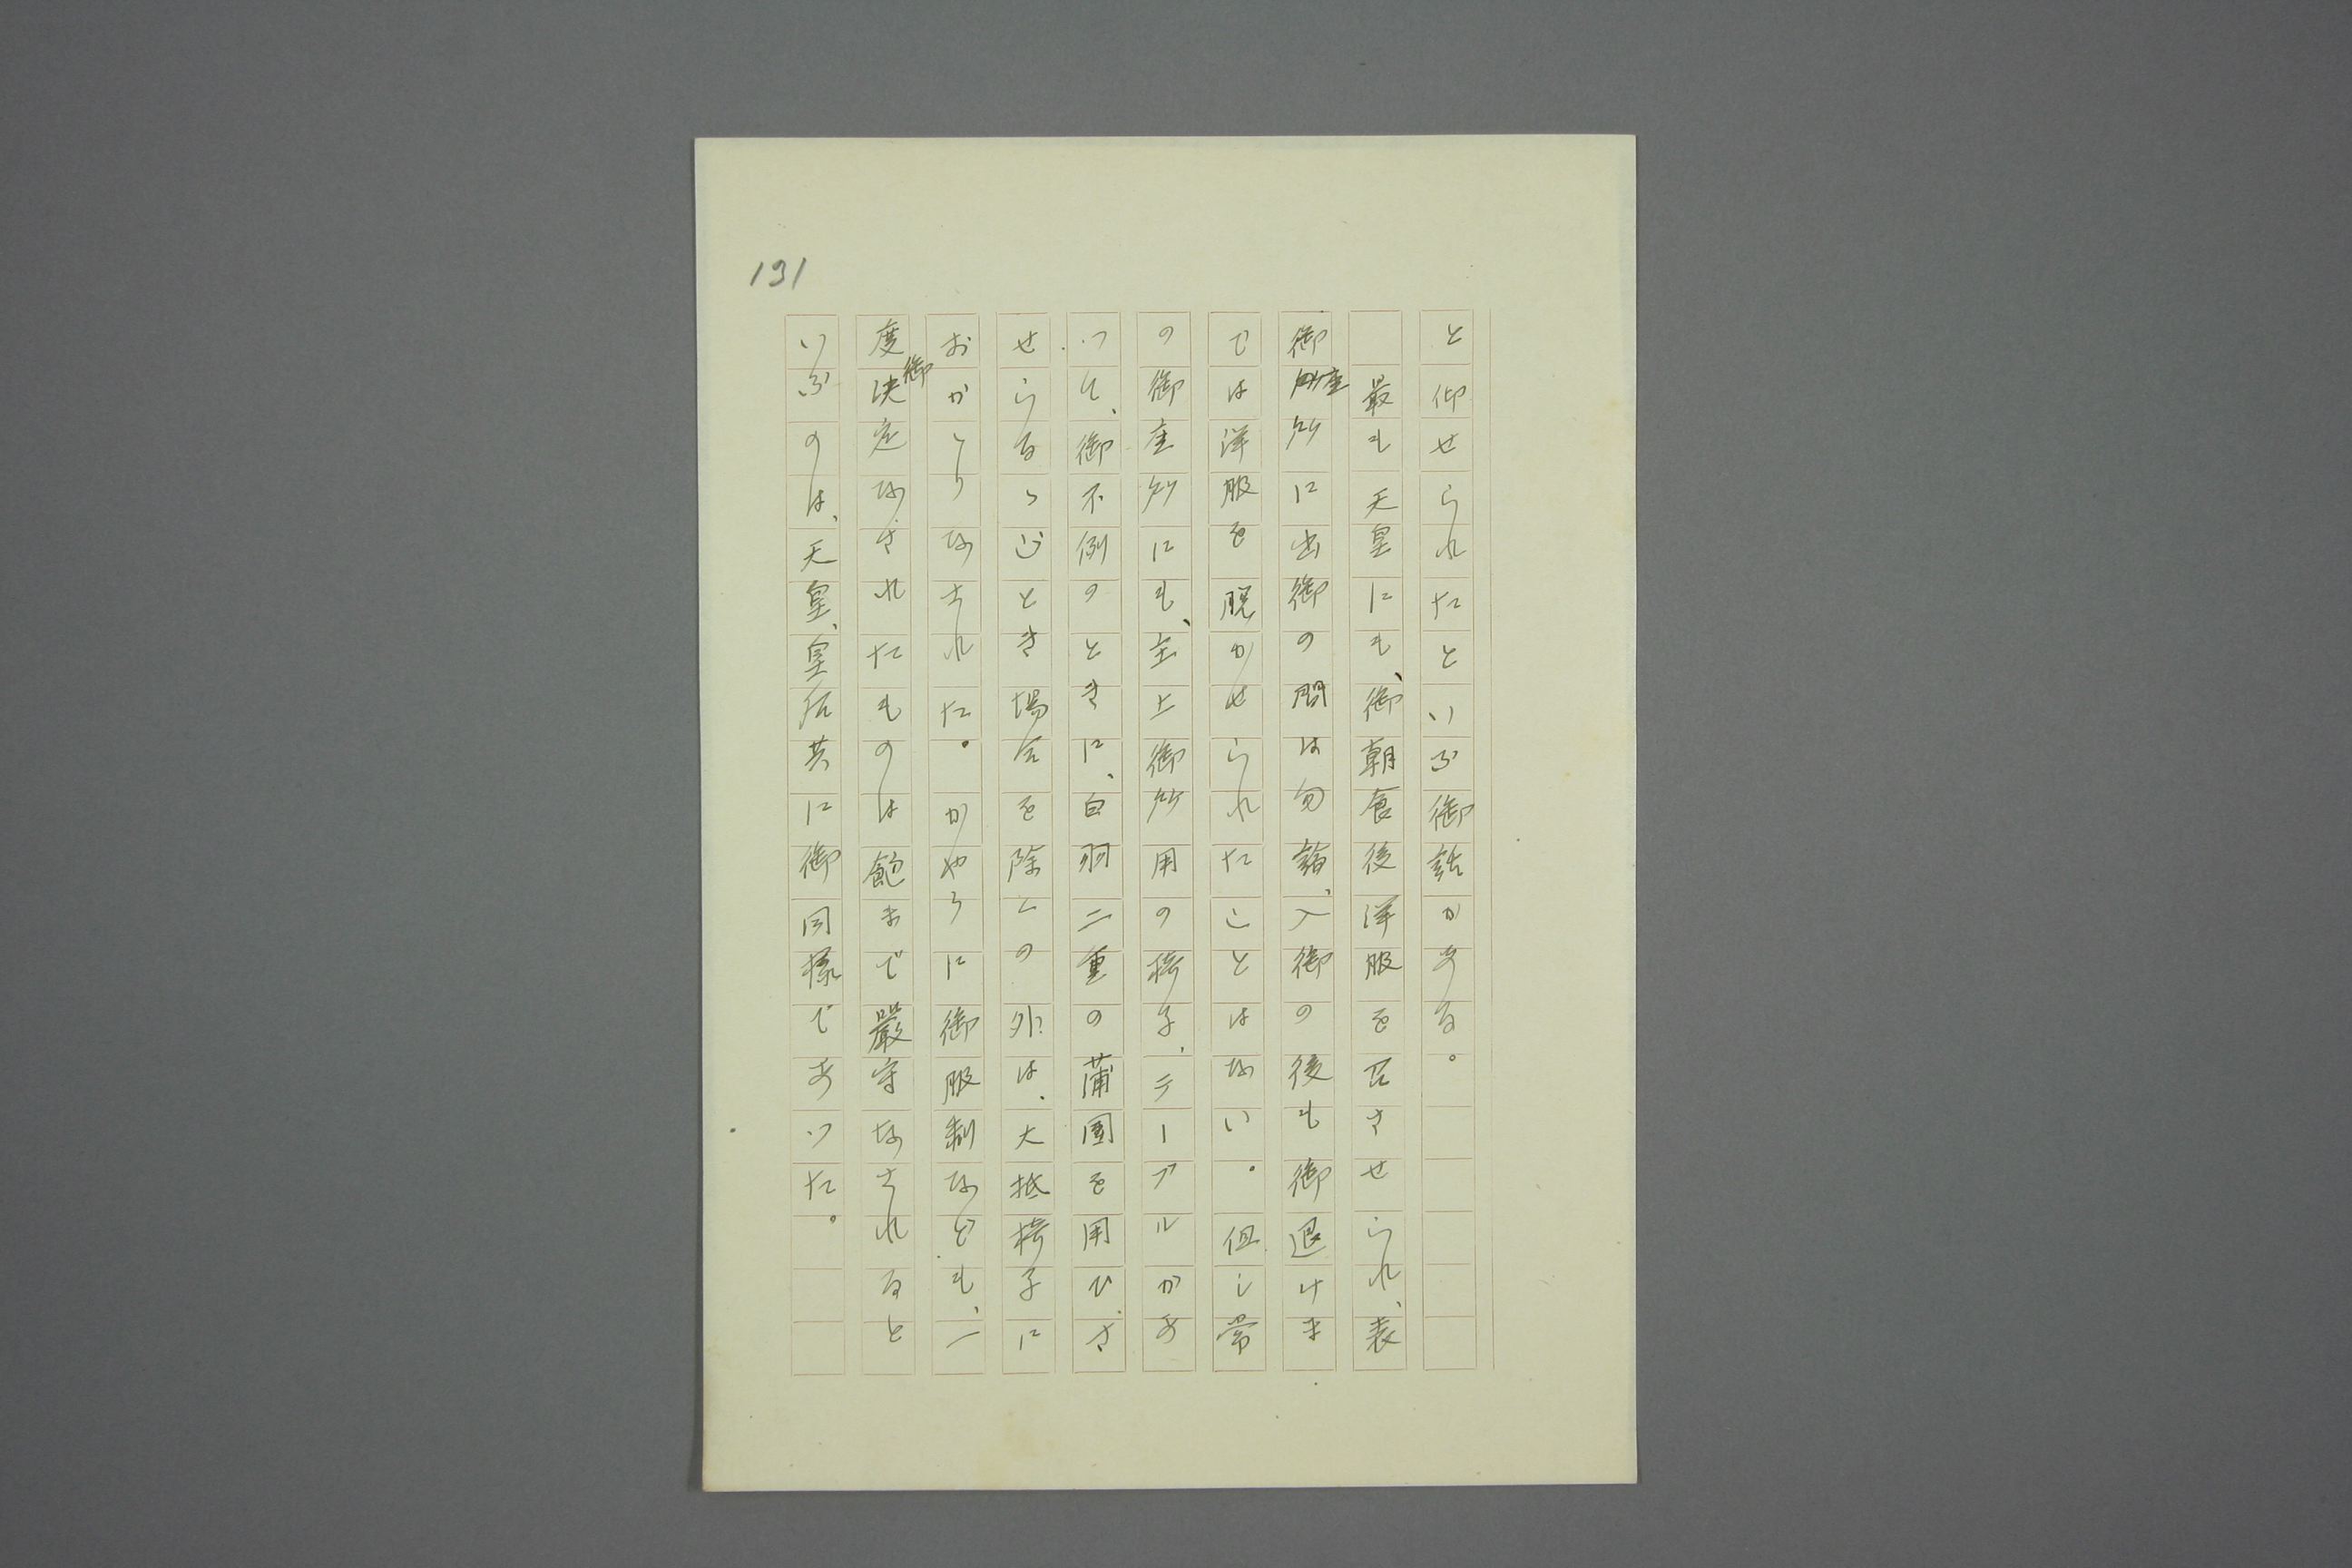 131
と仰せられたといふ御話がある。
最も天皇にも、御朝食後洋服を召させられ、表
御座所に出御の間は勿論、入御の後も御退けま
では洋服を脱がせられたことはない。但し常
の御座所にも、主上御所用の椅子、テーブルがあ
つて、御不例のときに、白羽二重の蒲團を用ひさ
せらるゝごとき場合を除くの外は、大抵椅子に
おかゝりなされた。かやうに御服制なども、一
度御決定なされたものは飽まで嚴守なされると
いふのは、天皇、皇后共に御同樣であつた。